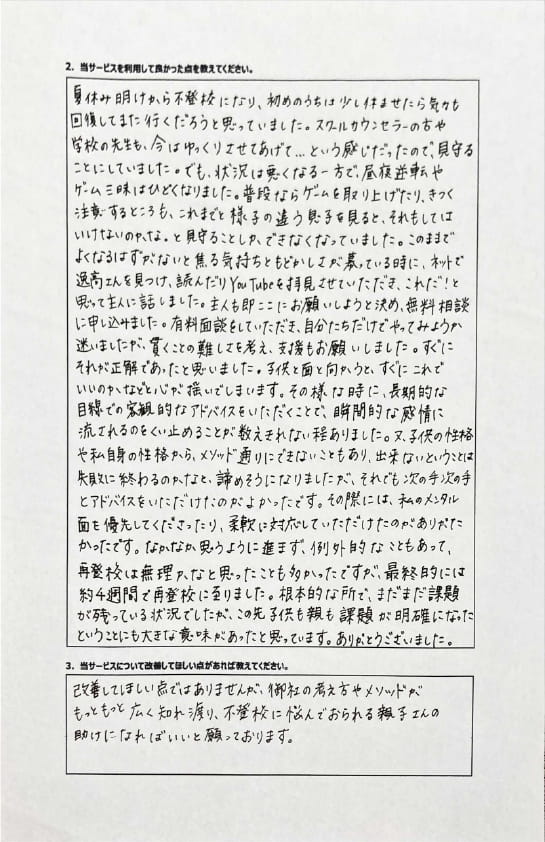 2. 当サービスを利用して良かった点を教えてください。
夏休み明けから不登校になり、初めのうちは少し休ませたら気力も
回復してまた行くだろうと思っていました。スクールカウンセラーの方や
学校の先生も、今はゆっくりさせてあげて…という感じだったので、見守る
ことにしていました。でも、状況は悪くなる一方で、昼夜逆転や
ゲーム三昧はひどくなりました。普段ならゲームを取り上げたり、きつく
注意するところも、これまでと様子の違う息子を見ると、それもしては
いけないのかな。と見守ることしかできなくなっていました。このままで
よくなるはずがないと焦る気持ちともどかしさが募っている時に、ネットで
逸高さんを見つけ、読んだりYouTubeを拝見させていただき、これだ!と
思って主人に話しました。主人も即ここにお願いしようと決め、無料相談
に申し込みました。有料面談をしていただき、自分たちだけでやってみようか
迷いましたが、貫くことの難しさを考え、支援もお願いしました。すぐに
それが正解であったと思いました。子供と面と向かうと、すぐにこれで
いいのかなどと心が揺いでしまいます。その様な時に、長期的な
目線での客観的なアドバイスをいただくことで、瞬間的な感情に
流されるのをくい止めることが数えきれない程ありました。又、子供の性格
や私自身の性格から、メソッド通りにできないこともあり、出来ないということは
失敗に終わるのかなと、諦めそうになりましたが、それでも次の手次の手
とアドバイスをいただけたのがよかったです。その際には、私のメンタル
面を優先してくださったり、柔軟に対応していただけたのがありがた
かったです。なかなか思うように進まず、例外的なこともあって、
再登校は無理かなと思ったことも多かったですが、最終的には
約4週間で再登校に至りました。根本的な所で、まだまだ課題
が残っている状況でしたが、この先子供も親も課題が明確になった
ということにも大きな意味があったと思っています。ありがとうございました。
3. 当サービスについて改善してほしい点があれば教えてください。
改善してほしい点ではありませんが、御社の考え方やメソッドが
もっともっと広く知れ渡り、不登校に悩んでおられる親子さんの
助けになればいいと願っております。